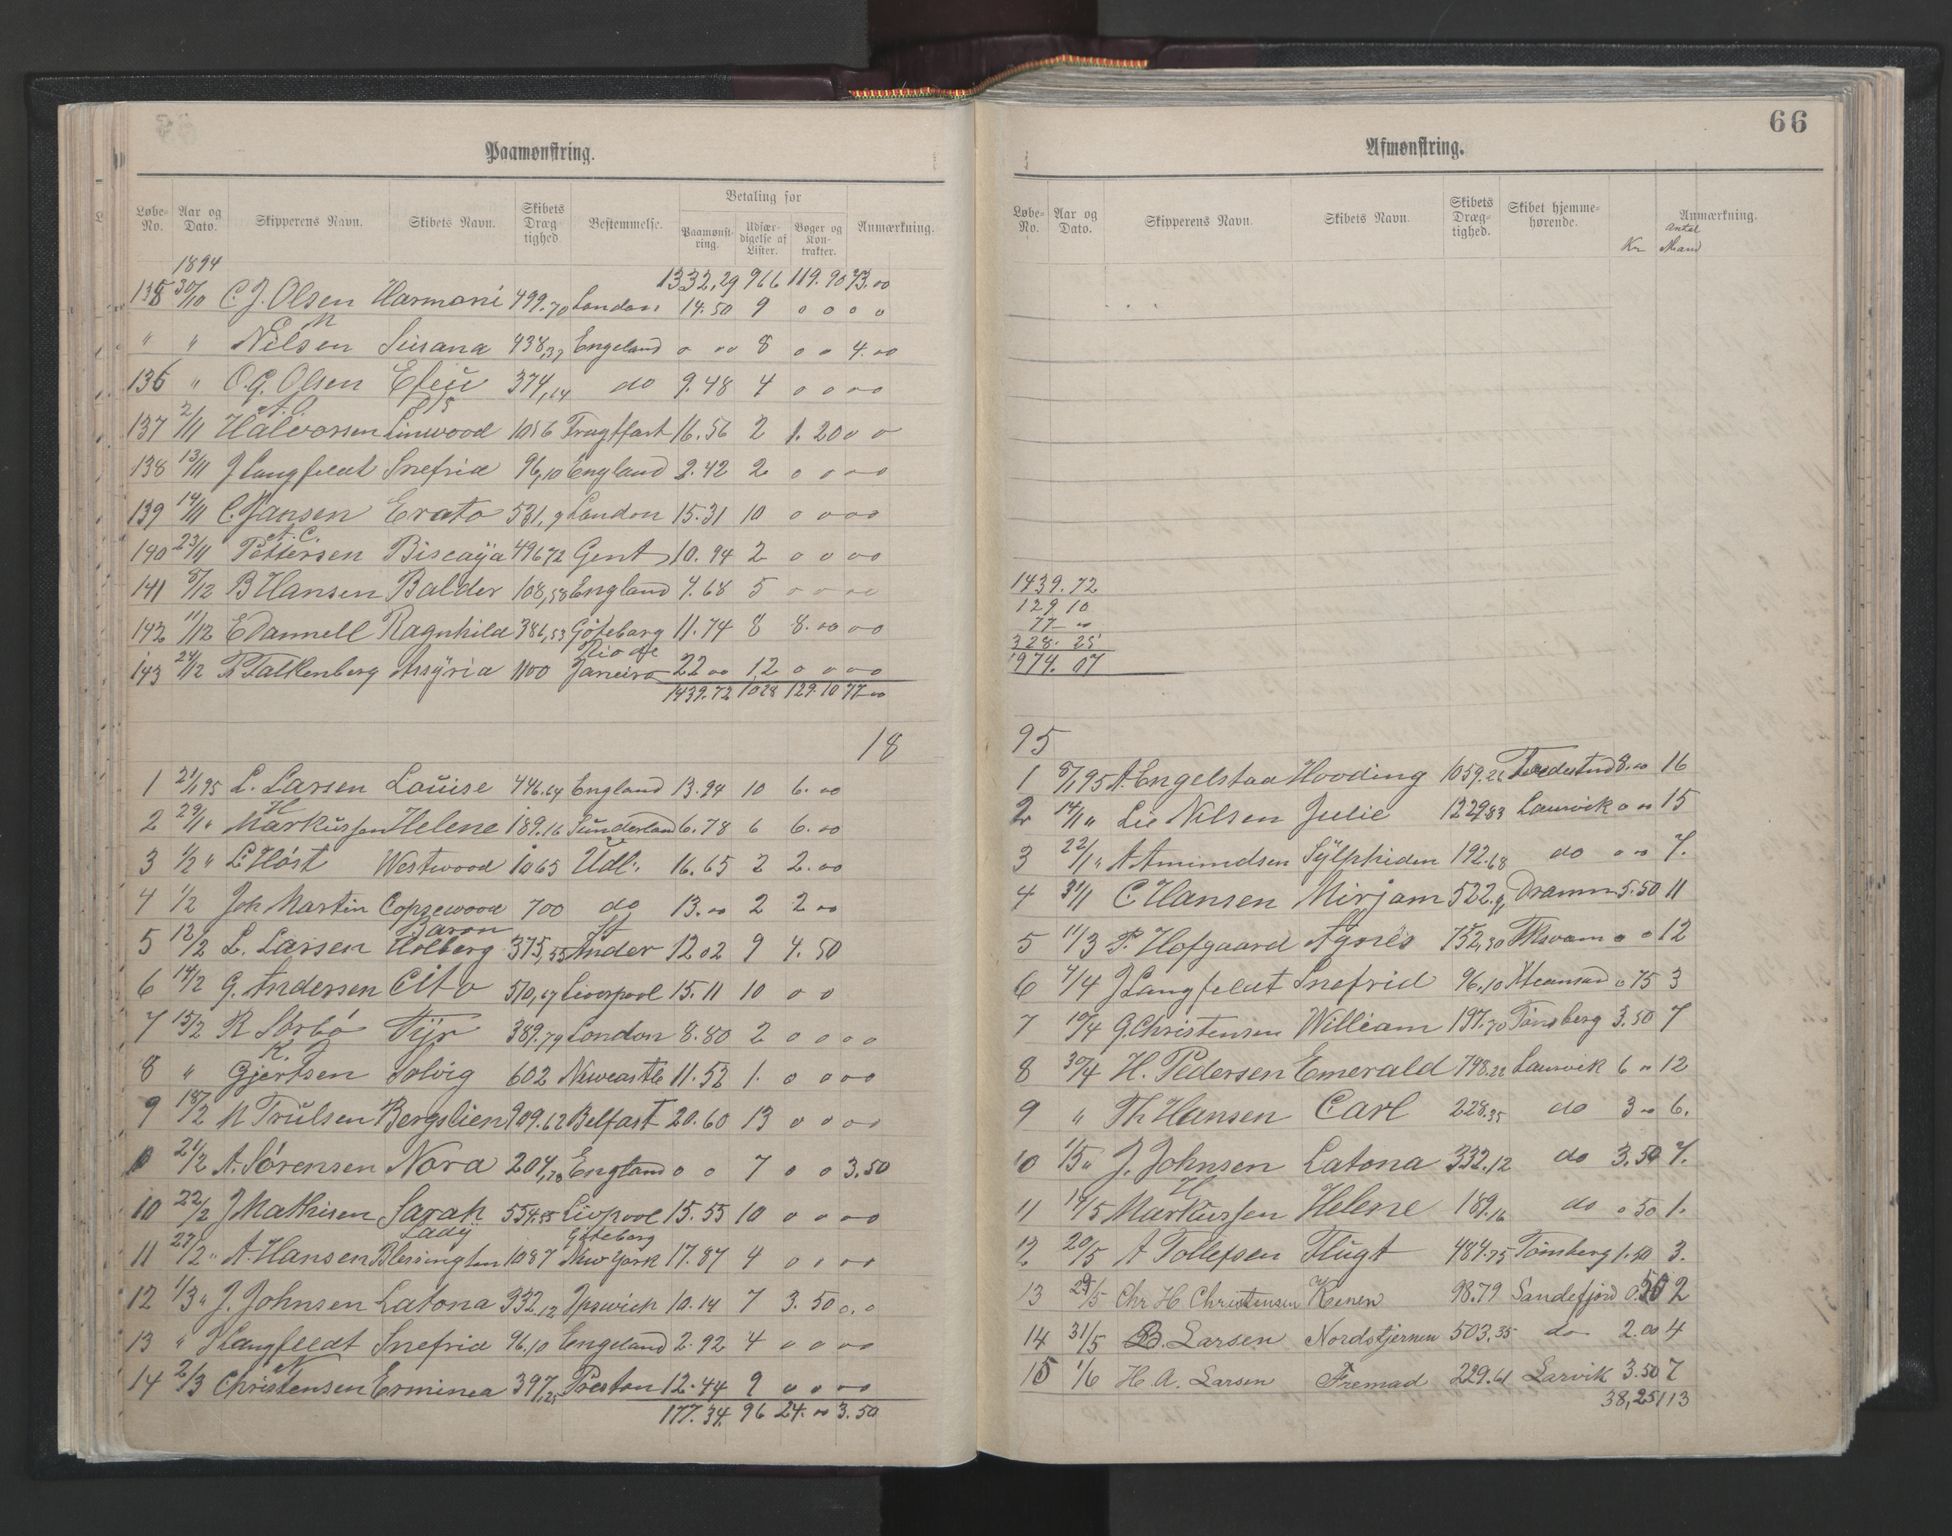 Paamønstring.
Løbe-No. Aar og Dato. Skipperens Navn. Skibets Navn. Skibets Dræg-tighed. Bestemmelse. Betaling for Paamønst-ring. Udfær-digelse af Lister. Bøger og Kon-trakter. Anmærkning.
1894 1332,29 966 119.90 73.00
135 30/10 C. J. Olsen Harmoni 499.70 London 14.50 9 0 0 0 0
" " N Nilsen Susana 438,37 Engeland 0 00 8 0 0 4.00
136 " O. G. Olsen 374,64 do 9.48 4 0 0 0 0
137 2/11 A. C. Halvorsen D/S Linwood 1056 Fragtfart 16.56 2 1.20 0 0
138 13/11 J Langfeldt Snefrid 96,10 England 2.42 2 0 0 0 0
139 14/11 C. Jansen Erato 531,9 London 15.31 10 0 0 0 0
140 23/11 A. C. Pettersen Biscaÿa 496 72 Gent 10.94 2 0 0 0 0
141 8/12 B Hansen Balder 108,58 England 4.68 5 0 0 0 0
142 11/12 E Dannell Ragnhild 386,53 Göteborg 11.74 8 8.00 0 0
143 24/12 P. Falkenberg Assÿria 1100 Rio de Janeiro 22 00 12 0 0 0 0
1439.72 1028 129.10 77.00
18
1 21/1 95 L. Larsen Louise 446.64 England 13.94 10 6.00
2 29/1 " H Markussen Helene 189.16 Sunderland 6.78 6 6.00
3 1/2 " L. Höst Westwood 1065 Udl. 16.65 2 2.00
4 1/2 Joh Martin Copsewood 700 do 13.00 2 2 00
5 12/2 L. Larsen Baron Holberg 375,55 St Ander 12 02 9 4.50
6 14/2 G. Andersen Cito 510,67 Liverpool 15.11 10 0 0
7 15/2 R Sörbö Tÿr 389.79 London 8.80 2 0 0 0 0
8 " K. J Gjertsen Solvig 602 Newcastle 11.52 1. 0 0 0 0
9 18/2 N Trulsen Bergslien 909.62 Belfast 20.60 13 0 0 0 0
21/2 A. Sörensen Nora 204,78 England 0 0 7 0 0 3.50
10 22/2 J Mathisen Sarah 554.85 Livpool 15.55 10 0 0 0 0
11 27/2 " A. Hansen Lady Blessington 1087 Göteborg New York 17.87 4 0 0 0 0
12 1/3 " J. Johnsen Latona 332.12 Ipswich 10.14 7 3.50 0.0
13 " J Langfeldt Snefrid 96.10 Engeland 2.92 4 0 0 0 0
14 2/3 N Christensen Erminea 397,21 Preston 12.44 9 0 0 0 0
177.34. 96 24.00 3.50
66
Afmønstring.
Løbe-No. Aar og Dato. Skipperens Navn. Skibets Navn. Skibets Dræg-tighed. Skibet hjemme-hørende. Kr Antal Mand Anmærkning.
1439.72
129 10
77 00
328. 25
1974. 07
95
1 8/1 95 A. Engelstad Hovding 1059.26 Fredestad 8.00 16
2 14/1 " Lie Nilsen Julie 1229.83 Laurvik 0 00 15
3 22/1 " A Amundsen Sÿlphiden 192.68 do 0 00 7.
4 31/1 C Hansen Mirjam 522.9 Dramm 5.50 11
5 11/3 P. Hofgaard Agnes 752,30 Thsvam 0 0 12
6 4/4 J Langfeldt Snefrid 96.10 0 75 3
7 10/4 G. Christensen William 197.70 Tönsberg 3.50 7
8 30/4 H. Pedersen Emerald 798.22 Laurvik 6 00 12
9 " Th Hansen Carl 228.35 do 3 00 6.
10 1/5 " J. Johnsen Latona 332.12 do 3.50 7.
11 14/5 H Markussen Helene 189.16 do 0 50 1.
12 20/5 A Tollefsen Flugt 484.75 Tönsberg 1.50 3.
13 29/5 Chr H Christensen Kenen 98.79 Sandefjord 0.50 2
14 31/5 B. Larsen Nordstjernen 503.35 do 2.00 4
15 1/6 H. A. Larsen Fremad 229.61 Larvik 3.50 7
38,25 113